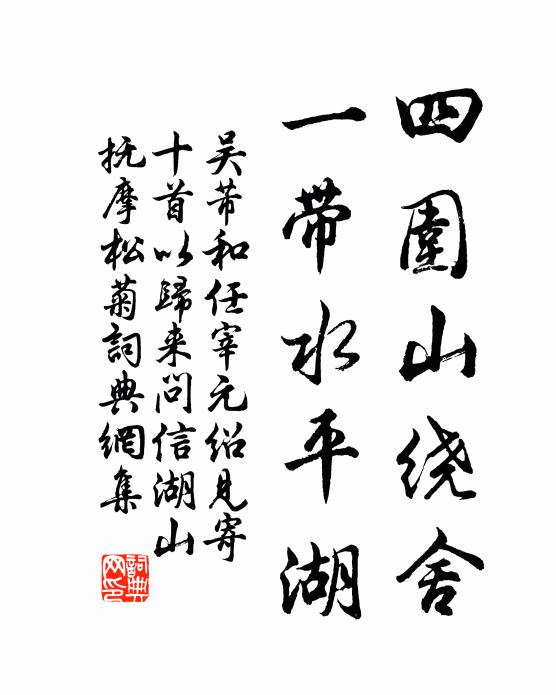 四圍山绕舍
一帶水平湖
吴芾和任宰元绍見寄
十首以歸来問信湖山
抚摩松菊詞典網集
詞典
网印